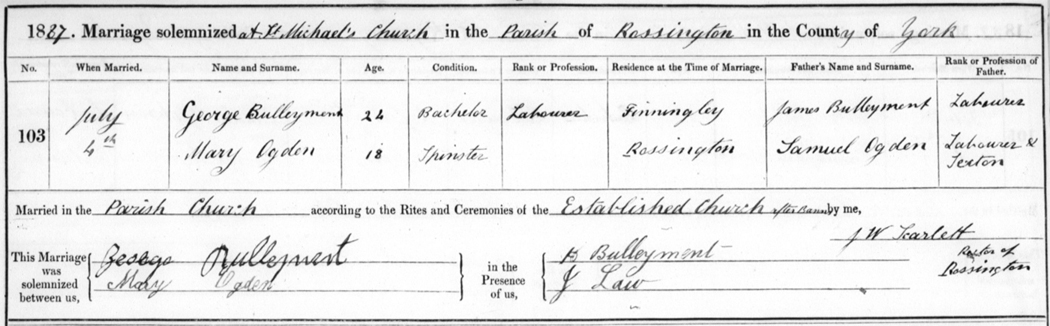 1887. Marriage solemnized at St Michael's Church in the Parish of Rossington in the County of York
No. When Married. Name and Surname. Age. Condition. Rank or Profession. Residence at the Time of Marriage. Father's Name and Surname. Rank or Profession of Father.
103 July 4th George Bulleyment 24 Bachelor Labourer Finningley James Bulleyment Labourer
Mary Ogden 18 Spinster Rossington Samuel Ogden Labourer & Sexton
Married in the Parish Church according to the Rites and Ceremonies of the Established Church after Banns by me,
J W Scarlett
Rector of Rossington
This Marriage was solemnized between us, George Bulleyment in the Presence of us, Bulleyment
Mary Ogden J Law